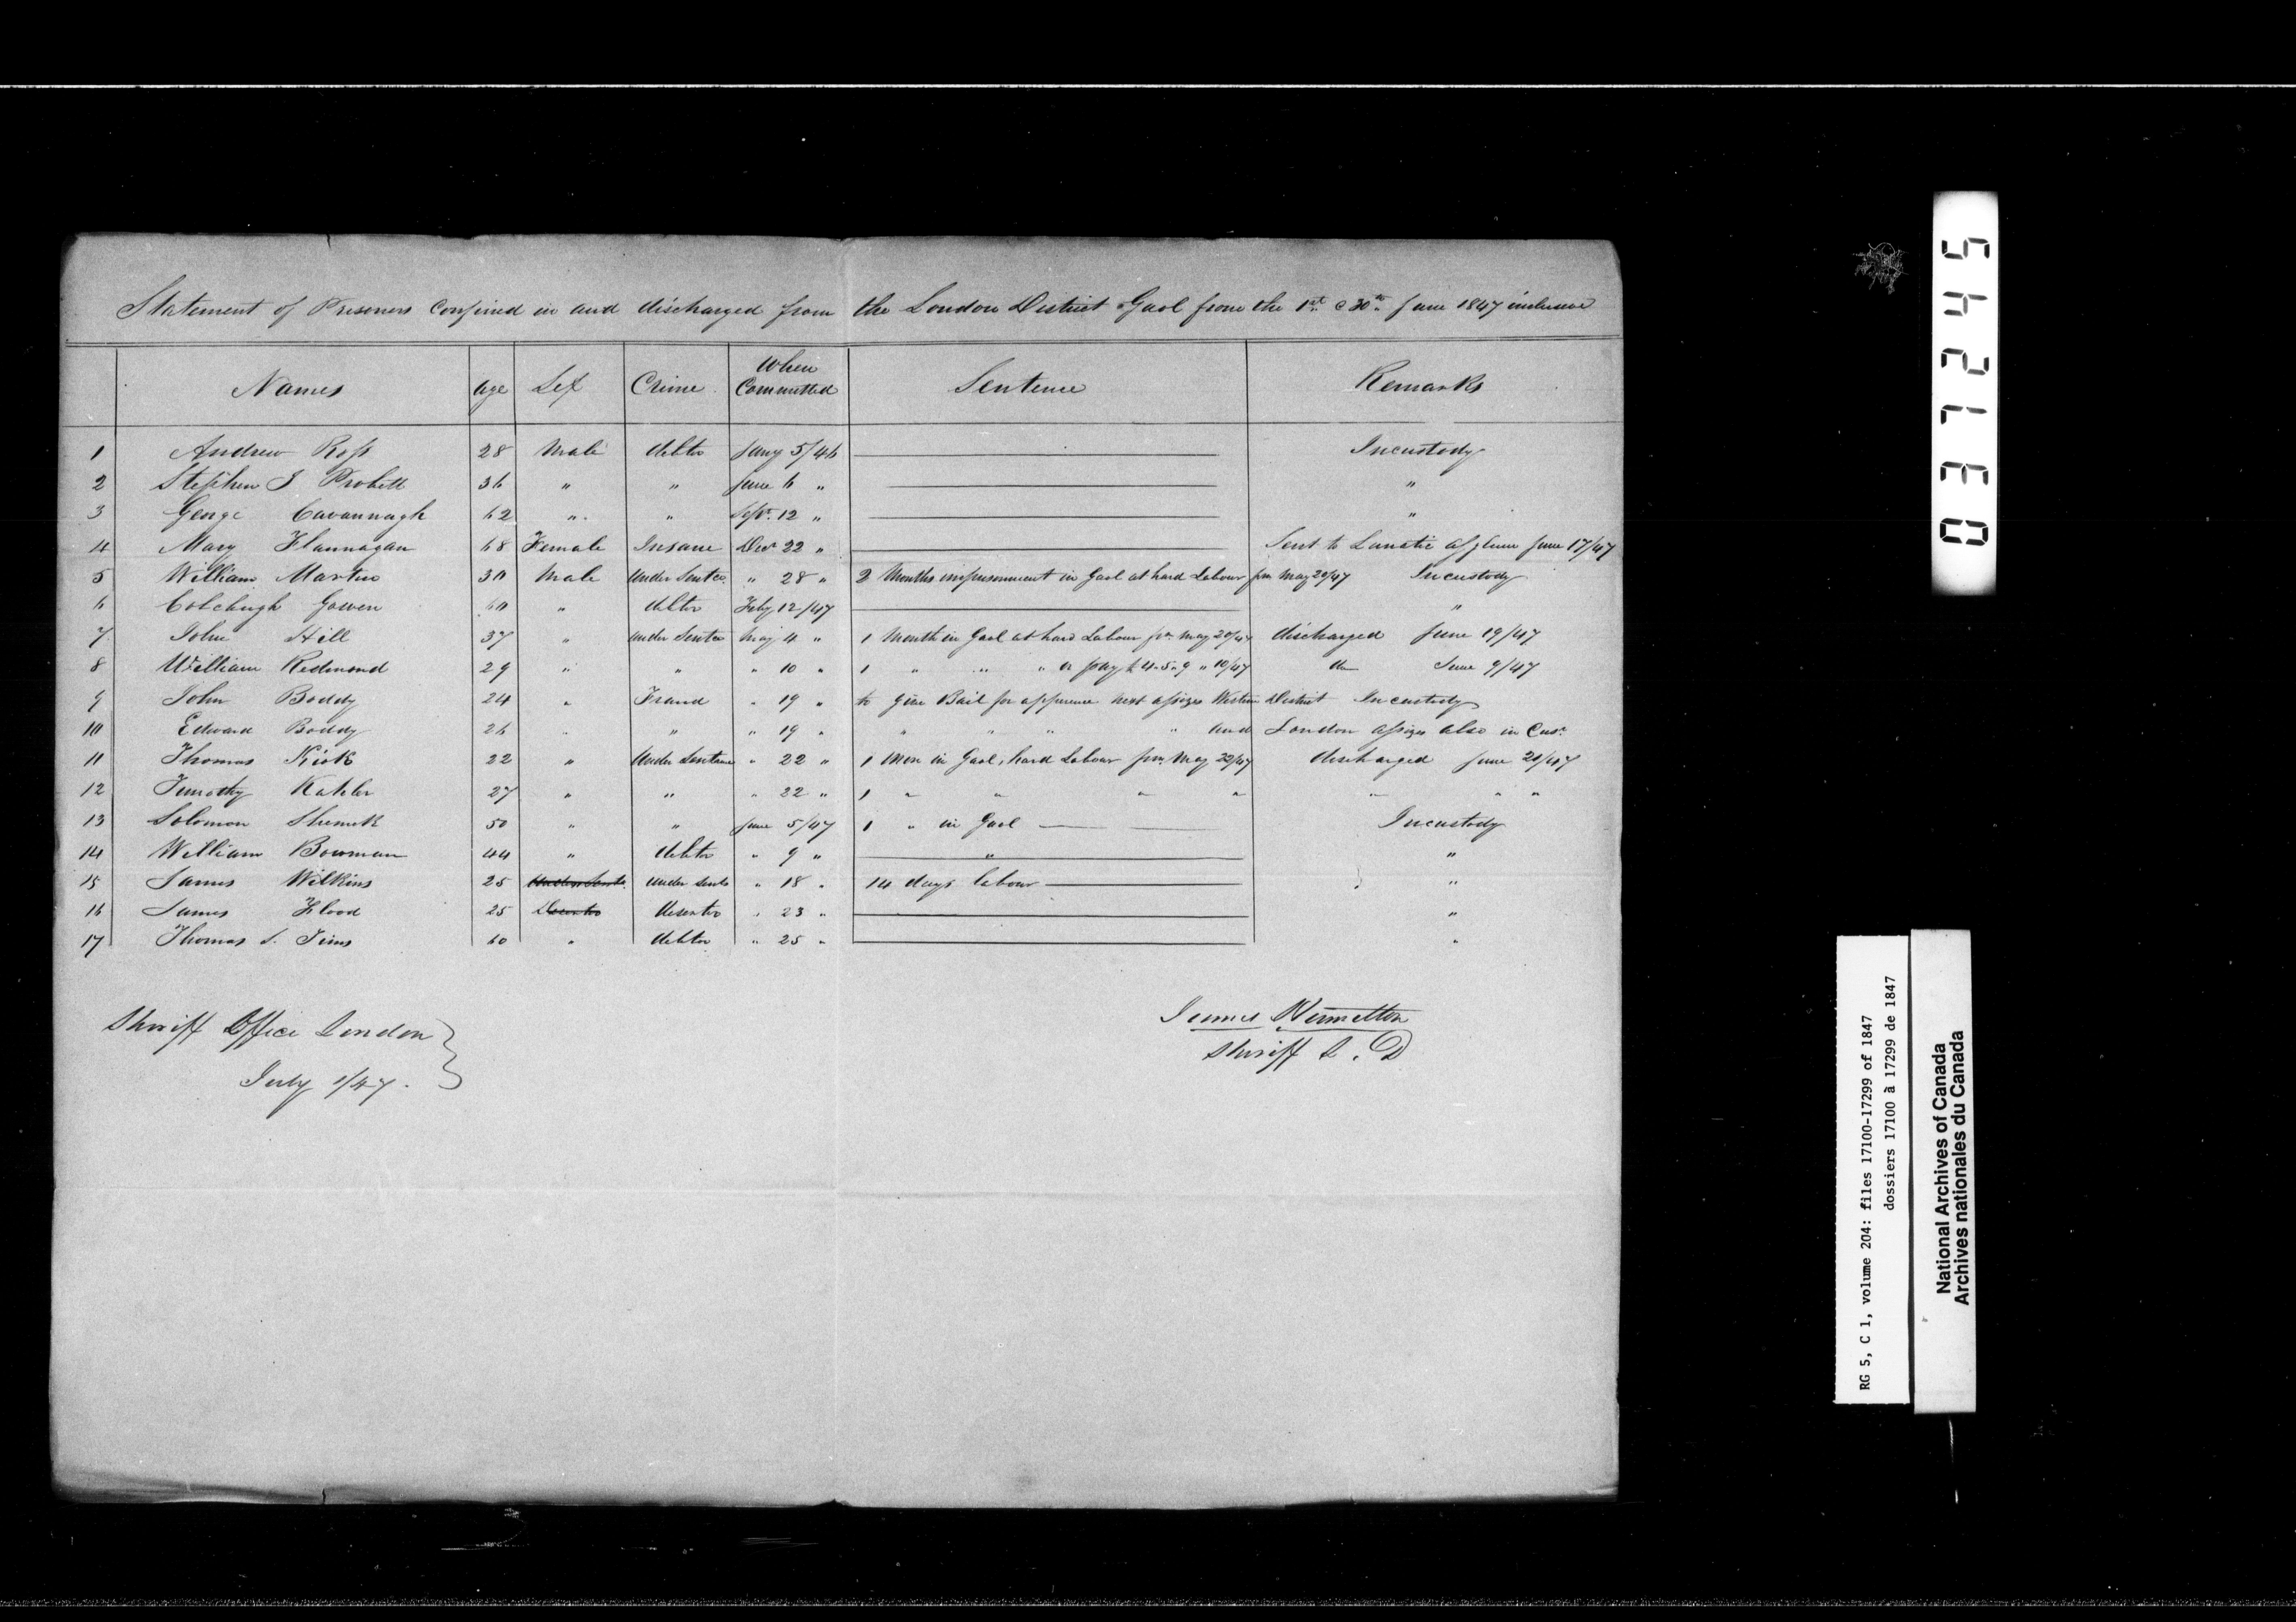 Statement of Prisoners Confined in and discharged from the London District Gaol from the 1st @ 30th June 1847 inclusive
Names age Sex Crime When Committed Sentence Remarks
1 Andrew Ross 28 Male debtor Jany 5/46 Incustody
2 Stephen J Probett 36 " " June 6 " "
3 George Cavannagh 62 " " Sept. 12 " "
4 Mary Flannagan 68 Female Insane Decr 22 " Sent to Lunatic assylum June 17/47
5 William Martin 30 Male Under Sentce " 28 " 2 Months imprisonment in Gaol at hard Labour frm May 20/47 Incustody
6 Gowen 60 " debtor Feby 12/47 "
7 John Hill 37 " Under Sentce May 4 " 1 Month in Gaol at hard Labour frm May 20/47 discharged June 19/47
8 William Redmond 29 " " " 10 " 1 " " " or pay £4.5.9 " 10/47 do June 9/47
9 John Boddy 24 " Fraud " 19 " to give Bail for next assizes Western District Incustody
10 Edward Boddy 26 " " " 19 " " " " " and London assizes also in Cusy
11 Thomas Kirk 22 " Under Sentence " 22 " 1 Mon in Gaol, hard Labour frm May 22/47 discharged June 21/47
12 Timothy Kahler 27 " " " 22 " 1 " " " " " " "
13 Solomon 50 " " June 5/47 1 " in Gaol Incustody
14 William Bowman 44 " debtor " 9 " " "
15 James Wilkins 25 Under Sentce Under Sentc " 18 " 14 days labour "
16 James Flood 25 Deserter deserter " 23 " "
17 Thomas S. Tims 60 " debtor " 25 " "
Sheriff Office London
July 1/47.
James Hamilton
Sheriff L. D
037245
RG 5, C 1, volume 204: files 17100-17299 of 1847
dossiers 17100 à 17299 de 1847
National Archives of Canada
Archives nationales du Canada